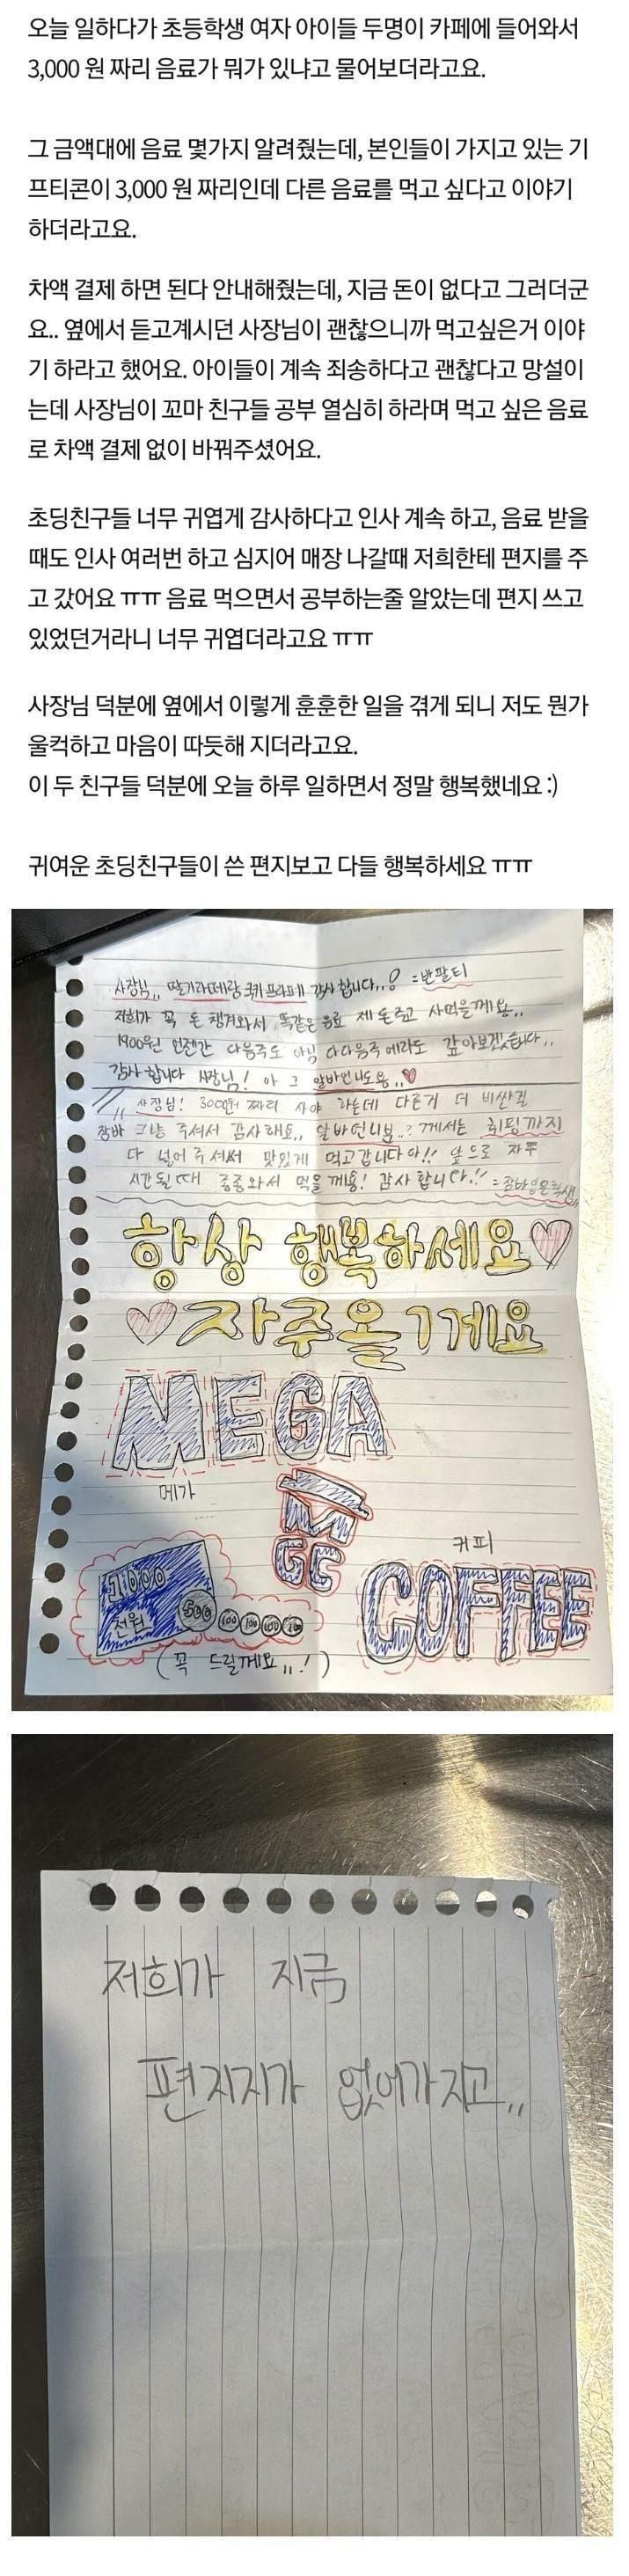 오늘 일하다가 초등학생 여자 아이들 두명이 카페에 들어와서
3,000 원 짜리 음료가 뭐가 있냐고 물어보더라고요.
그 금액대에 음료 몇가지 알려줬는데, 본인들이 가지고 있는 기
프티콘이 3,000 원 짜리인데 다른 음료를 먹고 싶다고 이야기
하더라고요.
차액 결제 하면 된다 안내해줬는데, 지금 돈이 없다고 그러더군
요.. 옆에서 듣고계시던 사장님이 괜찮으니까 먹고싶은거 이야
기 하라고 했어요. 아이들이 계속 죄송하다고 괜찮다고 망설이
는데 사장님이 꼬마 친구들 공부 열심히 하라며 먹고 싶은 음료
로 차액 결제 없이 바꿔주셨어요.
초딩친구들 너무 귀엽게 감사하다고 인사 계속 하고, 음료 받을
때도 인사 여러번 하고 심지어 매장 나갈때 저희한테 편지를 주
고 갔어요 ㅠㅠ 음료 먹으면서 공부하는줄 알았는데 편지 쓰고
있었던거라니 너무 귀엽더라고요 ㅠㅠ
사장님 덕분에 옆에서 이렇게 훈훈한 일을 겪게 되니 저도 뭔가
울컥하고 마음이 따듯해 지더라고요.
이 두 친구들 덕분에 오늘 하루 일하면서 정말 행복했네요 :)
귀여운 초딩친구들이 쓴 편지보고 다들 행복하세요 ㅠㅠ
사장님,, 딸기라떼랑 쿠키프라페 감사합니다..! =반팔티
저희가 꼭 돈 챙겨와서 똑같은 음료 제 돈주고 사먹을께요..
1900원 언젠간 다음주도 아님 다다음주에라도 갚아보겠습니다..
감사합니다 사장님! 아 그 알바언니도용..♥
사장님! 3000원 짜리 사야 하는데 다른거 더 비싼걸
그냥 주셔서 감사해요.. 알바언니분..? 께서는 휘핑까지
다 넣어주셔써 맛있게 먹고갑니다아!! 앞으로 자주
시간될때 종종와서 먹을께용! 감사합니다!!
항상 행복하세요♡
♡자주올게요
MEGA
메가
M
GC
커피
COFFEE
1000
천원
500 100 100 100 100
(꼭 드릴께요,,!)
저희가 지금
편지지가 없어가지고..